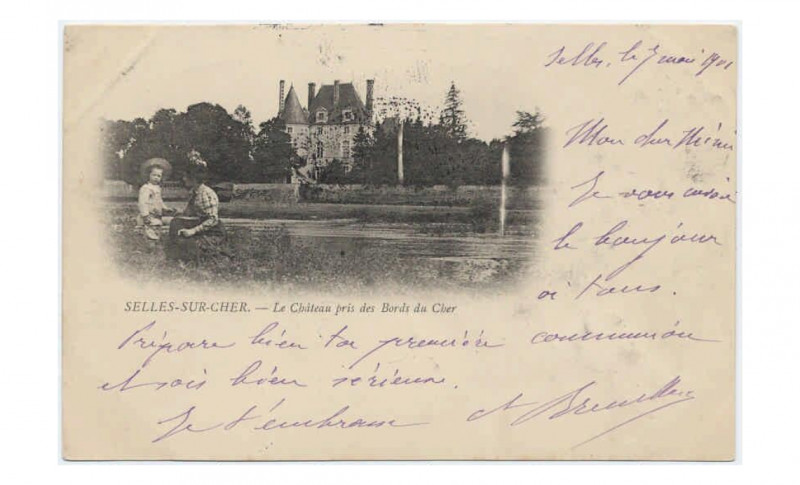 Selles, le 7 mai 1901
Mon cher
Je vous envoie
le bonjour
à tous.
SELLES-SUR-CHER. — Le Château pris des Bords du Cher
Prépare bien ta première communion
et sois bien sérieuse.
Je t'embrasse